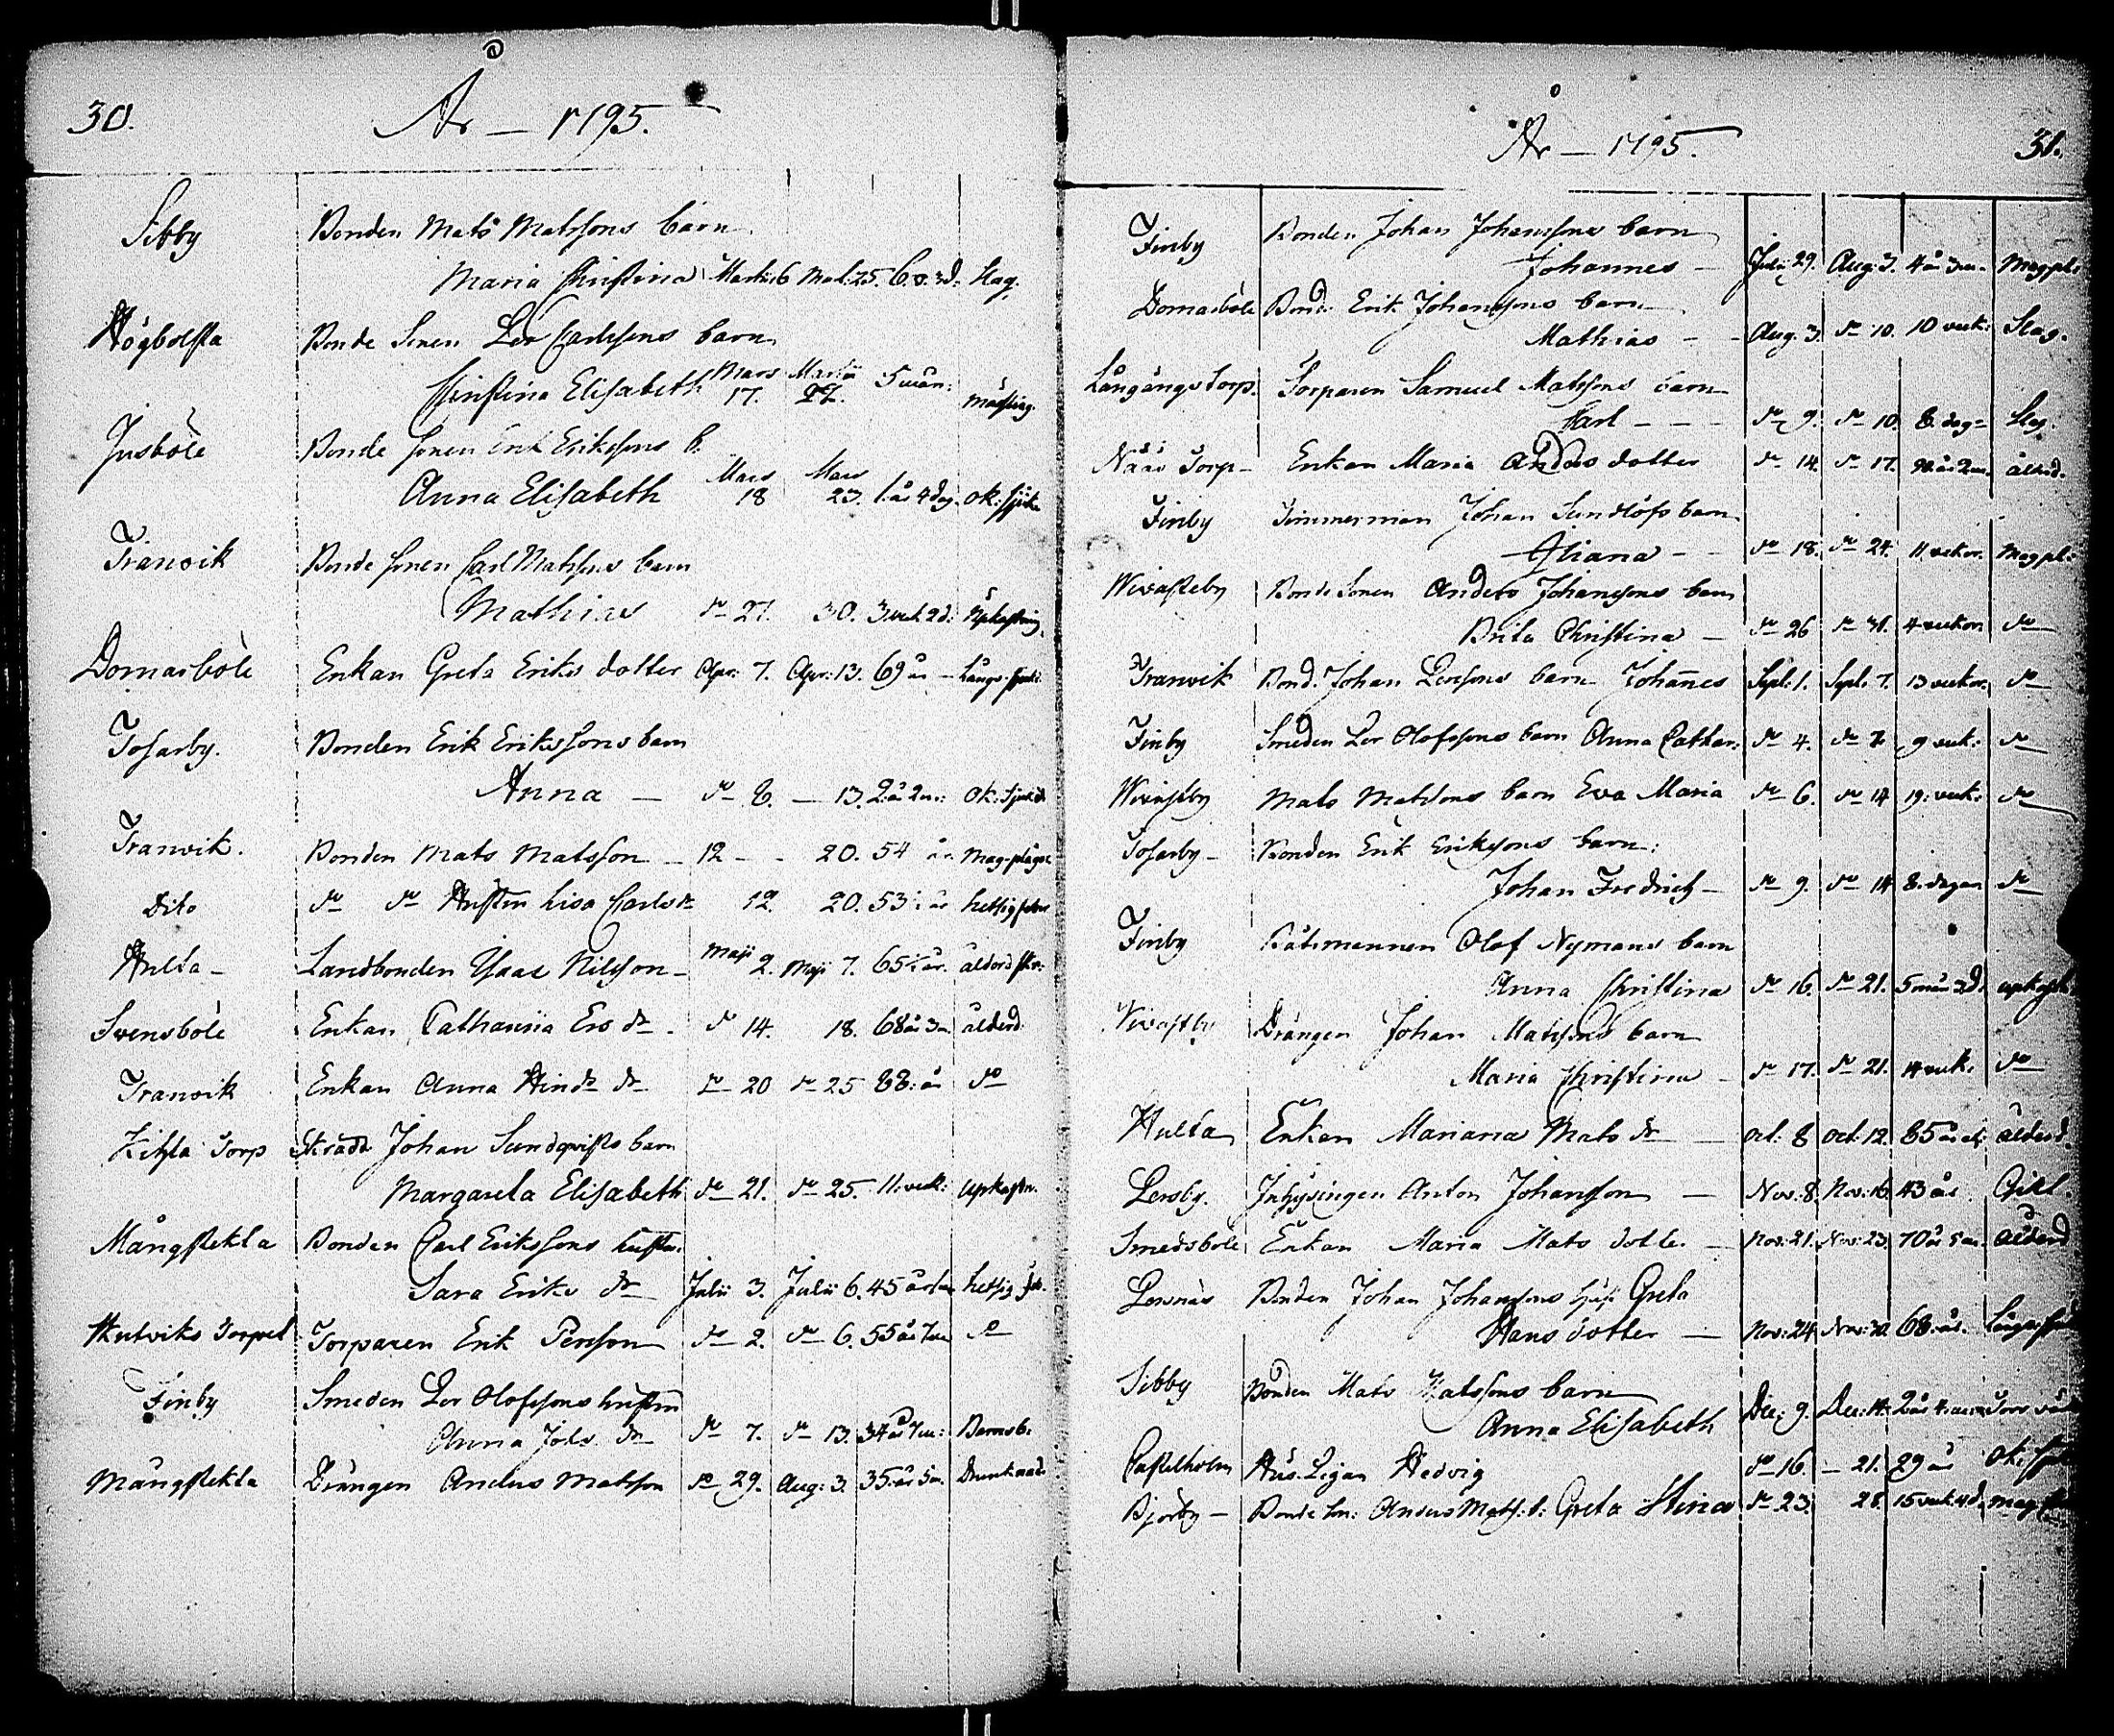 30.
År — 1795.
Sibby Bonden Mats Matssons barn
Maria Christina Martii 6 Mart. 25. 6. v. 3 d. Slag.
Högbolsta Bonde Sonen Per Carlssons barn
Christina Elisabeth Mars 17. Martii 22. 5 mån: mässling.
Jusböle Bonde Sonen Erik Erikssons b.
Anna Elisabeth Mars 18 Mars 23. 1. år 4 dag. ok: sjuk
Tranvik Bonde Sonen Carl Matssons barn
Mathias do 27. 30. 3. vek. 2 d: Upkastning
Domarböle Enkan Greta Eriks dotter Apr: 7. Apr: 13. 69 år — Långs. sjukd:
Tosarby. Bonden Erik Erikssons barn
Anna — do 8. — 13. 2. år 2 m: Ok: Sjukd.
Tranvik. Bonden Mats Matsson — 12 — - 20. 54 år Mag-plågor
Dito do do Hustru Lisa Carls dr 12. 20. 53 ½ år hettig feber
Hulta — Landbonden Isaac Nilsson — Maji 2. Maji 7. 65 ½ år. ålderd.
Svensböle Enkan Catharina Ers dr — do 14. 18. 68 år 3 m. ålderd.
Tranvik Enkan Anna Hindr dr do 20 do 25 88: år do
Torp Skrädd. Johan Sundqvists barn
Margareta Elisabeth do 21. do 25. 11. vek: Upkastn.
Mångstekta Bonden Carl Erikssons hustru
Sara Eriks dr Julii 3. Julii 6. 45 år hettig feb.
Hulviks Torpet Torparen Erik Persson do 2. do 6. 55 år 7 m do
Finby Smeden Per Olofssons hustru
Anna Joh. dr do 7. do 13. 34 år 7 m: Barnsb.
Mångstekta Drängen Anders Matsson do 29. Aug: 3. 35: år 5 m. Drunknad.
År — 1795.
31.
Finby Bonden Johan Johanssons barn
Johannes — Julii 29. Aug: 3. 4 år 3 m. Magpl:
Domarböle Bond: Erik Johanssons barn
Mathias — - Aug. 3. do 10. 10 vek: Slag.
Långängs Torp. Torparen Samuel Matssons barn
Karl — — - do 9. do 10. 8. dag. Slag.
Nääs Torp — Enkan Maria Anders dotter do 14. do 17. år 2 m. ålderd.
Finby Timmerman Johan Sundlöfs barn
do 18. do 24. 11. vekor. Magpl:
Wivasteby Bonde Sonen Anders Johanssons barn
Brita Christina — do 26 do 31. 4 vekor. do
Tranvik Bond. Johan Perssons barn Johannes Sept: 1. Sept: 7. 13 vekor. do
Finby Smeden Per Olofssons barn Anna Cathar: do 4. do 7. 9 vek: do
Wivastby Mats Matssons barn Eva Maria do 6. do 14 19: vek: do
Tosarby — Bonden Erik Erikssons barn:
Johan Fredrich — do 9. do 14 8. dagar do
Finby Båtsmannen Olof Nymans barn
Anna Christina do 16. do 21. 5 mån 3 d. upkastn.
Wivastby Drängen Johan Matssons barn
Maria Christina — do 17. do 21. 14 vek. do
Hulta Enkan Mariana Mats dr — Oct: 8 Oct: 12. 85 år ålderd.
Persby. Inhysingen Anton Johansson — Nov: 8. Nov: 16. 43 år. Gikt.
Smedsböle Enkan Maria Mats dotter — Nov: 21. Nov: 23. 70 år 5 m. Ålderd
Persnäs Bonden Johan Johanssons hust Greta
Hans dotter — Nov: 24. Nov: 30. 68. år. Långs: sjukd
Sibby Bonden Mats Matssons barn
Anna Elisabeth Dec: 9. Dec: 14. 2 år 4. m Torr värk
Castelholm Hus. Pigan Hedvig do 16. — 21. 29 år Ok. sjuk
Björby — Bonde Son: Anders Matss. b: Greta Stina do 23. 28. 15 vek 4 d. mag